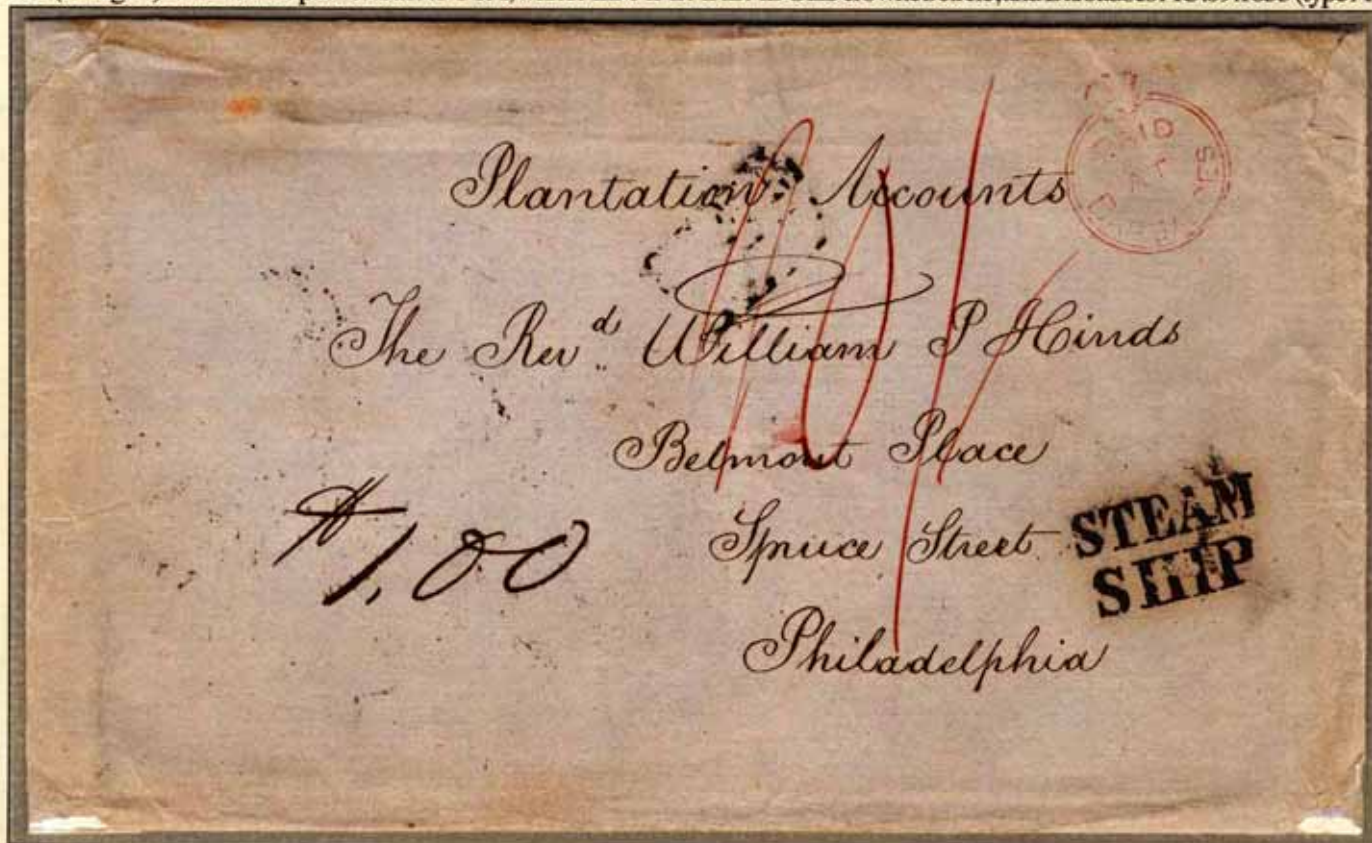 Plantation Accounts
The Revd. William P Hinds
Belmont Place
Spruce Street
Philadelphia
$1.00
STEAM
SHIP
PAID
AT